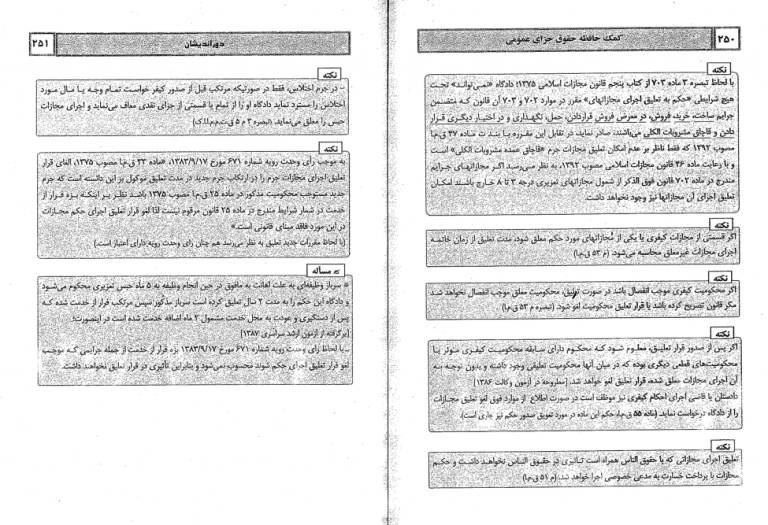 ۲۵۰
کمک حافظه حقوق جزای عمومی
نکته
با لحاظ تبصره ۳ ماده ۷۰۳ از کتاب پنجم قانون مجازات اسلامی ۱۳۷۵؛ دادگاه «نمی‌تواند» تحت
هیچ شرایطی «حکم به تعلیق اجرای مجازاتهای» مقرر در موارد ۷۰۲ و ۷۰۳ آن قانون که متضمن
جرایم ساخت، خرید، فروش، در معرض فروش قراردادن، حمل، نگهداری و در اختیار دیگری قرار
دادن و قاچاق مشروبات الکلی می‌باشند، صادر نماید، در تقابل این مقرره با بند ت ماده ۴۷ ق.م.ا
مصوب ۱۳۹۲ که فقط ناظر بر عدم امکان تعلیق مجازات جرم «قاچاق عمده مشروبات الکلی» است
و با رعایت ماده ۴۶ قانون مجازات اسلامی مصوب ۱۳۹۲، به نظر می‌رسد اگر مجازاتهای جرایم
مندرج در ماده ۷۰۲ قانون فوق الذکر از شمول مجازاتهای تعزیری درجه ۳ تا ۸ خارج باشند امکان
تعلیق اجرای آن مجازاتها نیز وجود نخواهد داشت.
نکته
اگر قسمتی از مجازات کیفری یا یکی از مجازاتهای مورد حکم معلق شود، مدت تعلیق از زمان خاتمه
اجرای مجازات غیرمعلق محاسبه می‌شود. (م ۵۳ ق.م.ا)
نکته
اگر محکومیت کیفری موجب انفصال باشد در صورت تعلیق، محکومیت معلق موجب انفصال نخواهد شد
مگر قانون تصریح کرده باشد یا قرار تعلیق محکومیت لغو شود. (تبصره م ۵۳ ق.م.ا)
نکته
اگر پس از صدور قرار تعلیق، معلوم شود که محکوم دارای سابقه محکومیت کیفری موثر یا
محکومیت‌های قطعی دیگری بوده که در میان آنها محکومیت تعلیقی وجود داشته و بدون توجه به
آن اجرای مجازات معلق شده، قرار تعلیق لغو خواهد شد. [مطروحه در آزمون وکالت ۱۳۸۶]
دادستان یا قاضی اجرای احکام کیفری نیز موظف است در صورت اطلاع از موارد فوق لغو تعلیق مجازات
را از دادگاه درخواست نماید. (ماده ۵۵ ق.م.ا، حکم این ماده در مورد تعویق صدور حکم نیز جاری است)
نکته
تعلیق اجرای مجازاتی که با حقوق الناس همراه است تـاثیری در حقـوق النـاس نخواهـد داشـت و حکـم
مجازات با پرداخت خسارت به مدعی خصوصی اجرا خواهد شد. (م ۵۱ ق.م.ا)
دوراندیشان
۲۵۱
نکته
– در جرم اختلاس، فقط در صورتیکه مرتکب قبل از صدور کیفر خواست تمام وجه یا مال مورد
اختلاس را مسترد نماید دادگاه او را از تمام یا قسمتی از جزای نقدی معاف می‌نماید و اجرای مجازات
حبس را معلق می‌نماید. (تبصره ۳ م ۵ ق.ت.م.م.ا.ک)
نکته
به موجب رأی وحدت رویه شماره ۶۷۱ مورخ ۱۳۸۳/۹/۱۷، «ماده ۳۳ ق.م.ا مصوب ۱۳۷۵، الغای قرار
تعلیق اجرای مجازات جرم را در ارتکاب جرم جدید در مدت تعلیق موکول بر این دانسته است که جرم
جدید مستوجب محکومیت مذکور در ماده ۲۵ ق.م.ا مصوب ۱۳۷۵ باشد نظر بر اینکه بزه فرار از
خدمت در شمار شرایط مندرج در ماده ۲۵ قانون مرقوم نیست لذا لغو قرار تعلیق اجرای حکم مجازات
در این مورد فاقد مبنای قانونی است.»
(با لحاظ مقررات جدید تعلیق به نظر می‌رسد هم چنان رای وحدت رویه دارای اعتبار است.)
مسأله
سرباز وظیفه‌ای به علت اهانت به مافوق در حین انجام وظیفه به ۵ ماه حبس تعزیری محکوم می‌شود
و دادگاه این حکم را به مدت ۲ سال تعلیق کرده است سرباز مذکور سپس مرتکب فرار از خدمت شده که
پس از دستگیری و عودت به محل خدمت مشمول ۳ ماه اضافه خدمت شده است در اینصورت:
[برگرفته از آزمون ارشد سراسری ۱۳۸۷]
ـ با لحاظ رای وحدت رویه شماره ۶۷۱ مورخ ۱۳۸۳/۹/۱۷ بزه فرار از خدمت از جمله جرایمی که موجب
لغو قرار تعلیق اجرای حکم شوند محسوب نمی‌شود و بنابراین تأثیری در قرار تعلیق نخواهند داشت.